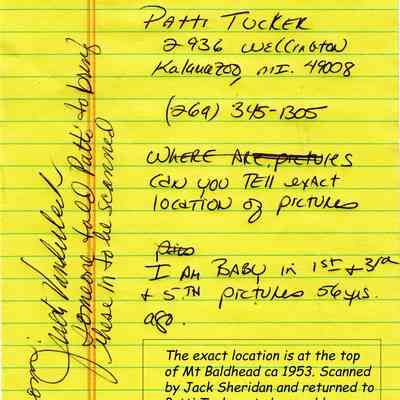 PATTI TUCKER
2936 WELLINGTON
Kalamazoo, MI. 49008
(269) 345-1305
WHERE ARE pictures
CAN YOU TELL exact
location of pictures
I AM BABY in 1st + 3rd
+ 5TH pictures 56 yrs.
ago.
The exact location is at the top
of Mt Baldhead ca 1953. Scanned
by Jack Sheridan and returned to
someone told Patti to bring
these in to be scanned